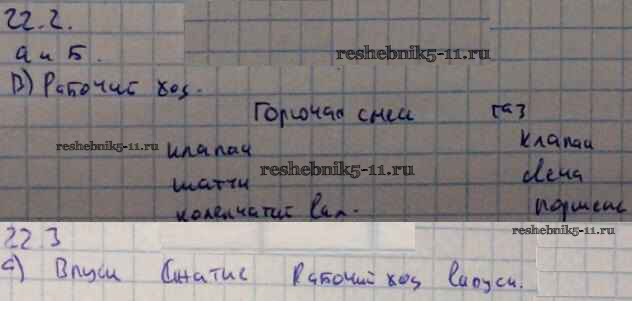 22.2.
а и Б.
reshebnik5-11.ru
В) Рабочий ход.
Горючая смесь газ
reshebnik5-11.ru клапан клапан
reshebnik5-11.ru
шатун свеча
коленчатый вал. поршень
reshebnik5-11.ru
22 3
а) Впуск Сжатие Рабочий ход Выпуск.